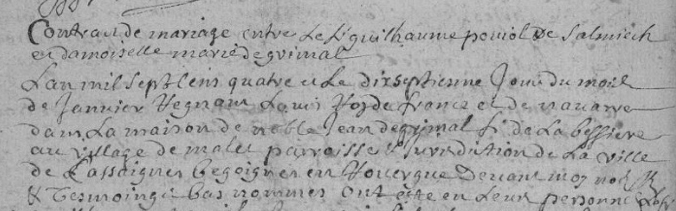 Contrat de mariage entre Le Sr guilhaume poujol de Salmiech
et damoiselle marie de grimal
Lan mil sept cens quatre et Le dix septieme Jour du mois
de Janvier Regnant Louis Roy de france et de navarre
dans La maison de noble jean de grimal sr de La bessiere
au village de malet parroisse et Jurisdiction de La ville
de Cassaignes begoignes en Rouergue devant moy nore
& tesmoings bas nommes ont este en Leurs personnes